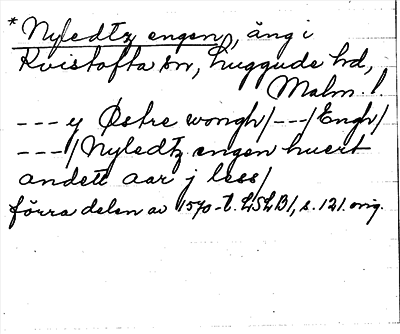 *Nyledtz engen, äng i
Kvistofta sn, Luggude hd,
Malm. l.
--- y Østre wongh/---/Engh/
---/Nyledtz engen huert
andett aar j less/
förra delen av 1570-t. LSLB1, s. 121. orig.